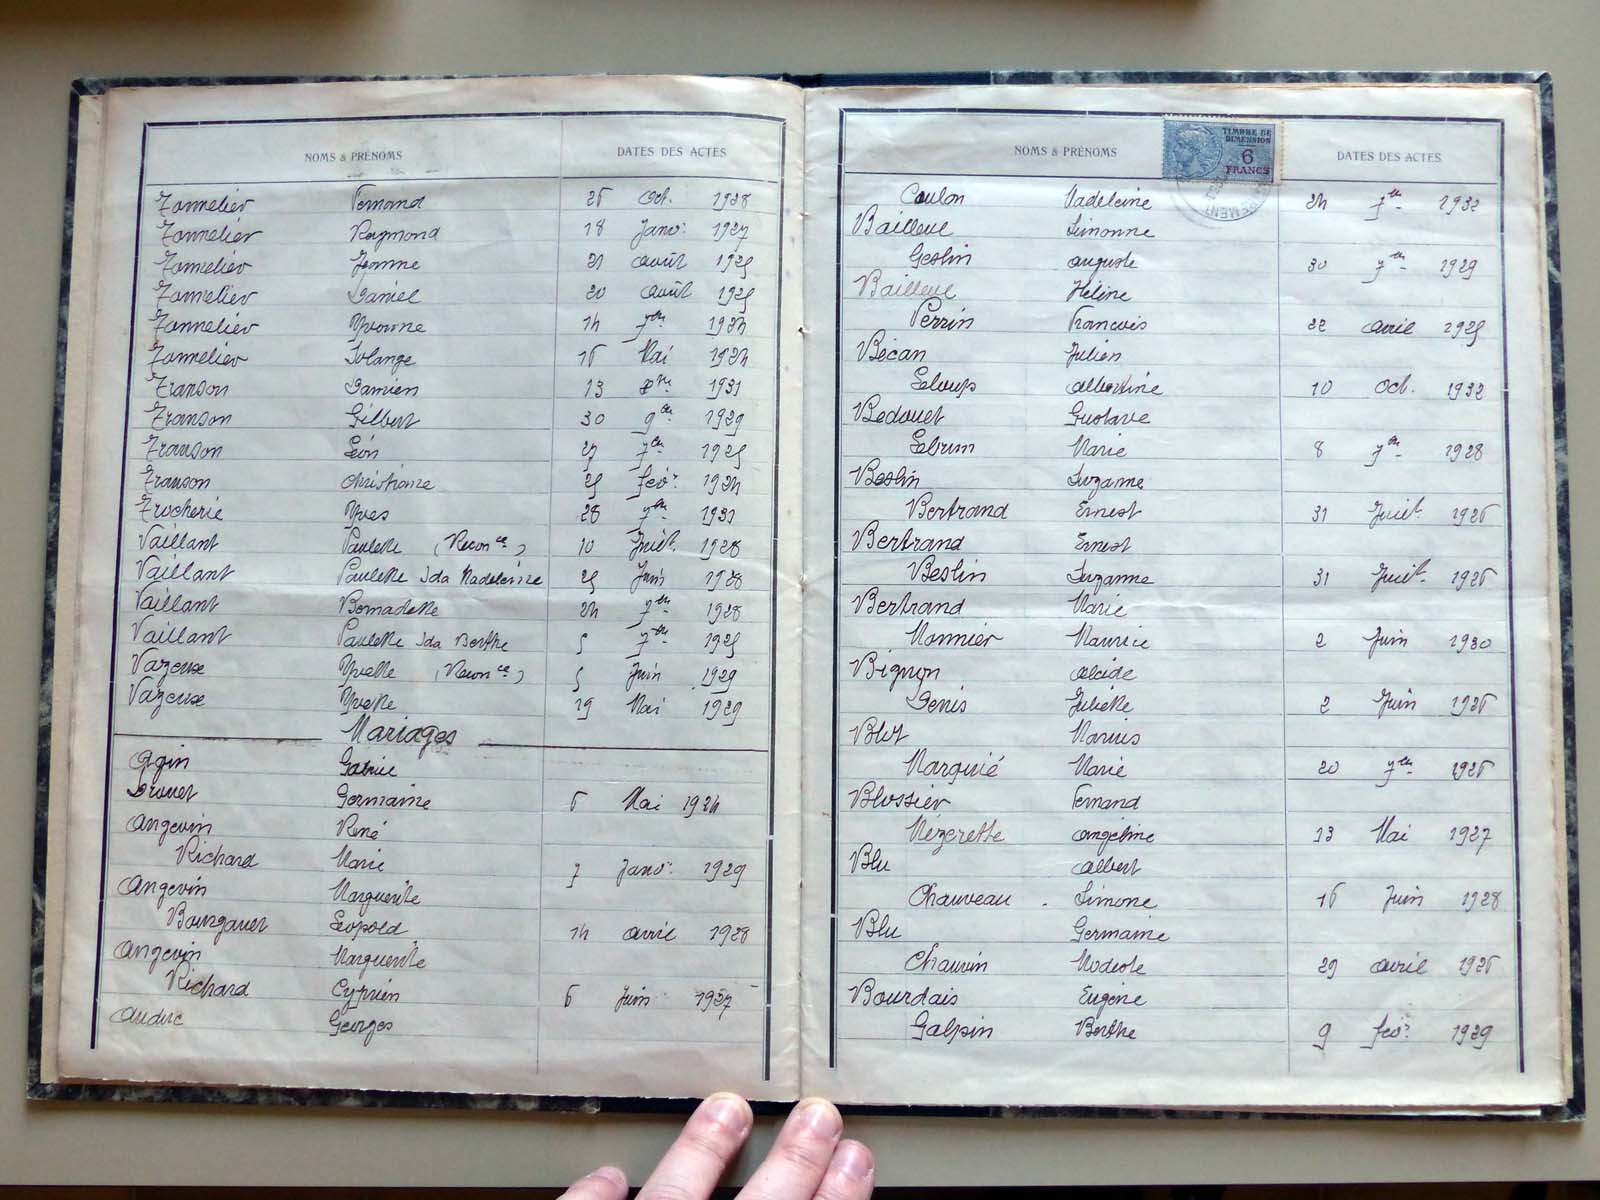 NOMS & PRÉNOMS DATES DES ACTES
Tonnelier Fernand 26 Oct. 1928
Tonnelier Raymond 18 Janv. 1927
Tonnelier Jeanne 21 août 1925
Tonnelier Daniel 20 août 1925
Tonnelier Yvonne 14 7bre 1924
Tonnelier Solange 16 Mai 1924
Transon Damien 13 8bre 1931
Transon Gilbert 30 9bre 1929
Transon Léon 27 7bre 1925
Transon Christiane 25 févr. 1924
Trocherie Yves 28 7bre 1931
Vaillant Paulette (Reconce) 10 Juilt. 1928
Vaillant Paulette Ida Madeleine 25 Juin 1928
Vaillant Bernadette 24 7bre 1928
Vaillant Paulette Ida Berthe 5 7bre 1925
Vazeux Yvette (Reconce) 5 Juin 1929
Vazeux Yvette 19 Mai 1929
Mariages
Agin Gabriel
Drouet Germaine 6 Mai 1924
Angevin René
Richard Marie 7 Janvr. 1929
Angevin Marguerite
Bourgauet Léopold 14 avril 1928
Angevin Marguerite
Richard Cyprien 6 Juin 1927
Auduc Georges
NOMS & PRÉNOMS DATES DES ACTES
TIMBRE DE
DIMENSION
6
FRANCS
Coulon Madeleine 24 7bre 1932
Bailleul Simonne
Geslin Auguste 30 7bre 1929
Bailleul Hélène
Perrin François 22 avril 1925
Bécan Julien
Leloup Albertine 10 Oct. 1932
Bedouet Gustave
Lebrun Marie 8 7bre 1928
Beslin Suzanne
Bertrand Ernest 31 Juilt. 1926
Bertrand Ernest
Beslin Suzanne 31 Juilt. 1926
Bertrand Marie
Monnier Maurice 2 Juin 1930
Bignon Alcide
Denis Juliette 2 Juin 1926
Blot Marius
Marquié Marie 20 7bre 1926
Blossier Fernand
Mézerette Angéline 13 Mai 1927
Blu Albert
Chauveau Simone 16 Juin 1928
Blu Germaine
Chauvin Modeste 29 avril 1926
Bourdais Eugène
Galpin Berthe 9 févr. 1929